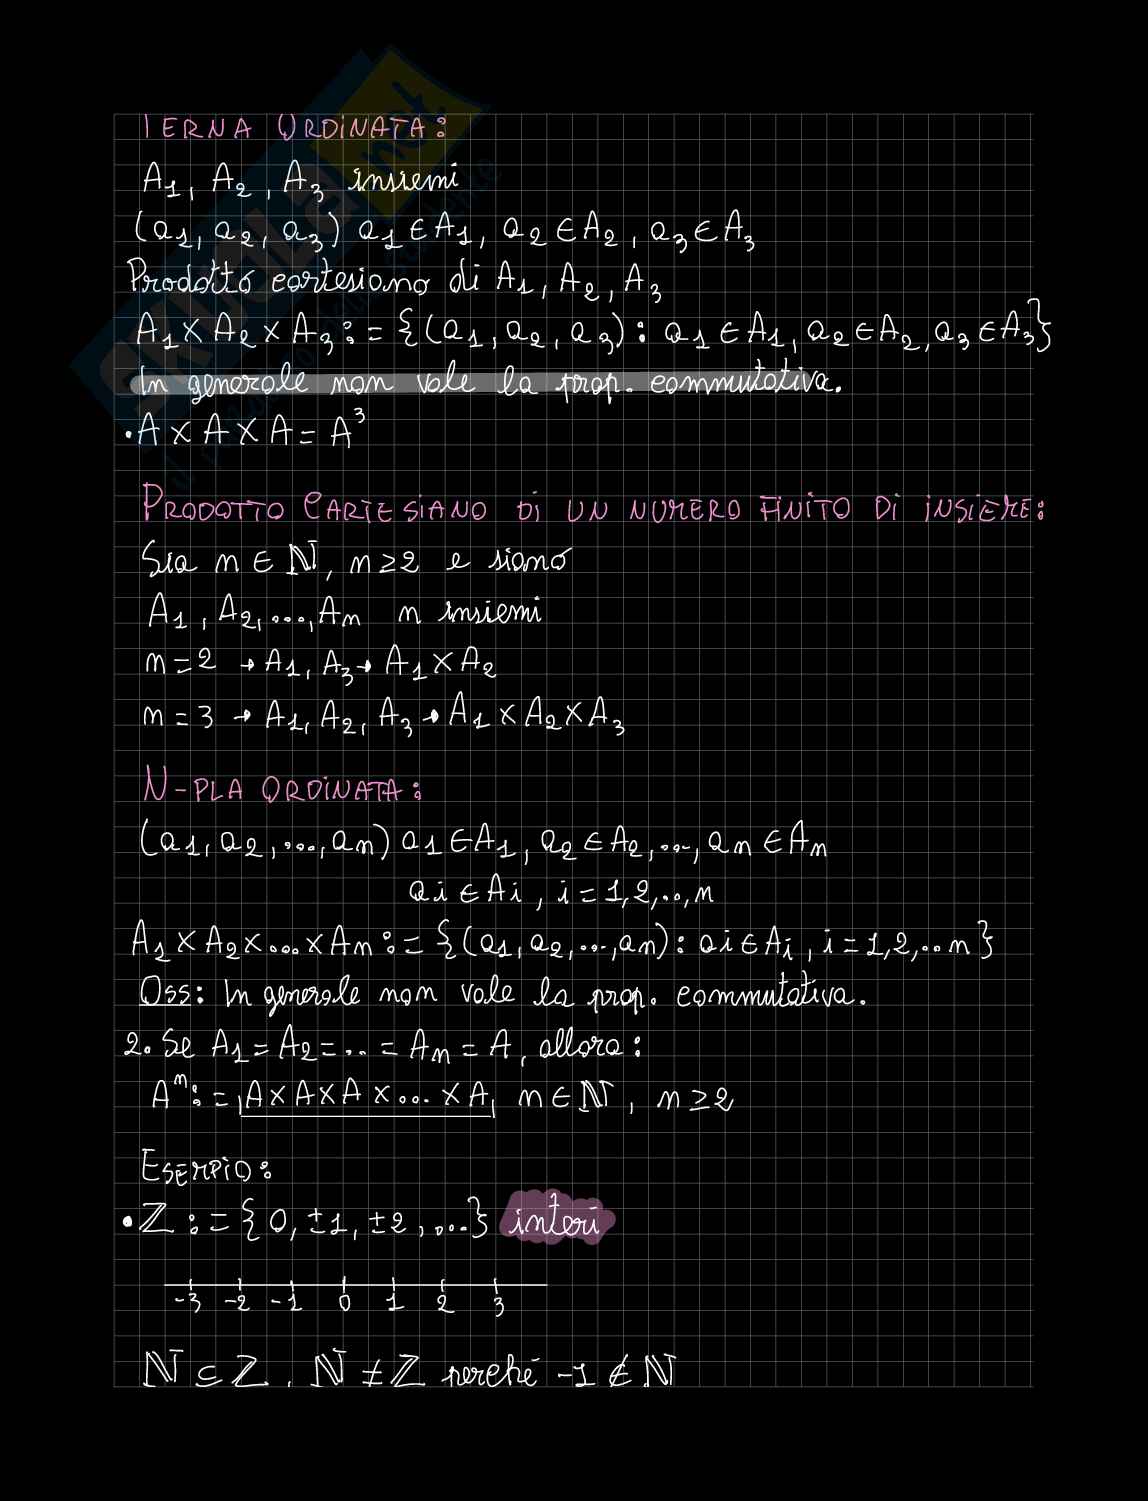 TERNA ORDINATA:
A₁, A₂, A₃ insiemi
(a₁, a₂, a₃) a₁ ∈ A₁, a₂ ∈ A₂, a₃ ∈ A₃
Prodotto cartesiano di A₁, A₂, A₃
A₁ × A₂ × A₃ := {(a₁, a₂, a₃) : a₁ ∈ A₁, a₂ ∈ A₂, a₃ ∈ A₃}
In generale non vale la prop. commutativa.
• A × A × A = A³
PRODOTTO CARTESIANO DI UN NUMERO FINITO DI INSIEME:
Sia n ∈ ℕ, n ≥ 2 e siano
A₁, A₂, ..., Aₙ n insiemi
n = 2 → A₁, A₃ → A₁ × A₂
n = 3 → A₁, A₂, A₃ → A₁ × A₂ × A₃
N-PLA ORDINATA:
(a₁, a₂, ..., aₙ) a₁ ∈ A₁, a₂ ∈ A₂, ..., aₙ ∈ Aₙ
ai ∈ Ai, i = 1, 2, .., n
A₁ × A₂ × ... × Aₙ := {(a₁, a₂, ..., aₙ) : ai ∈ Ai, i = 1, 2, .. n}
Oss: In generale non vale la prop. commutativa.
2. Se A₁ = A₂ = .. = Aₙ = A, allora:
Aⁿ := A × A × A × ... × A, n ∈ ℕ, n ≥ 2
ESEMPIO:
• ℤ := {0, ±1, ±2, ...} interi
-3 -2 -1 0 1 2 3
ℕ ⊆ ℤ, ℕ ≠ ℤ perché -1 ∉ ℕ